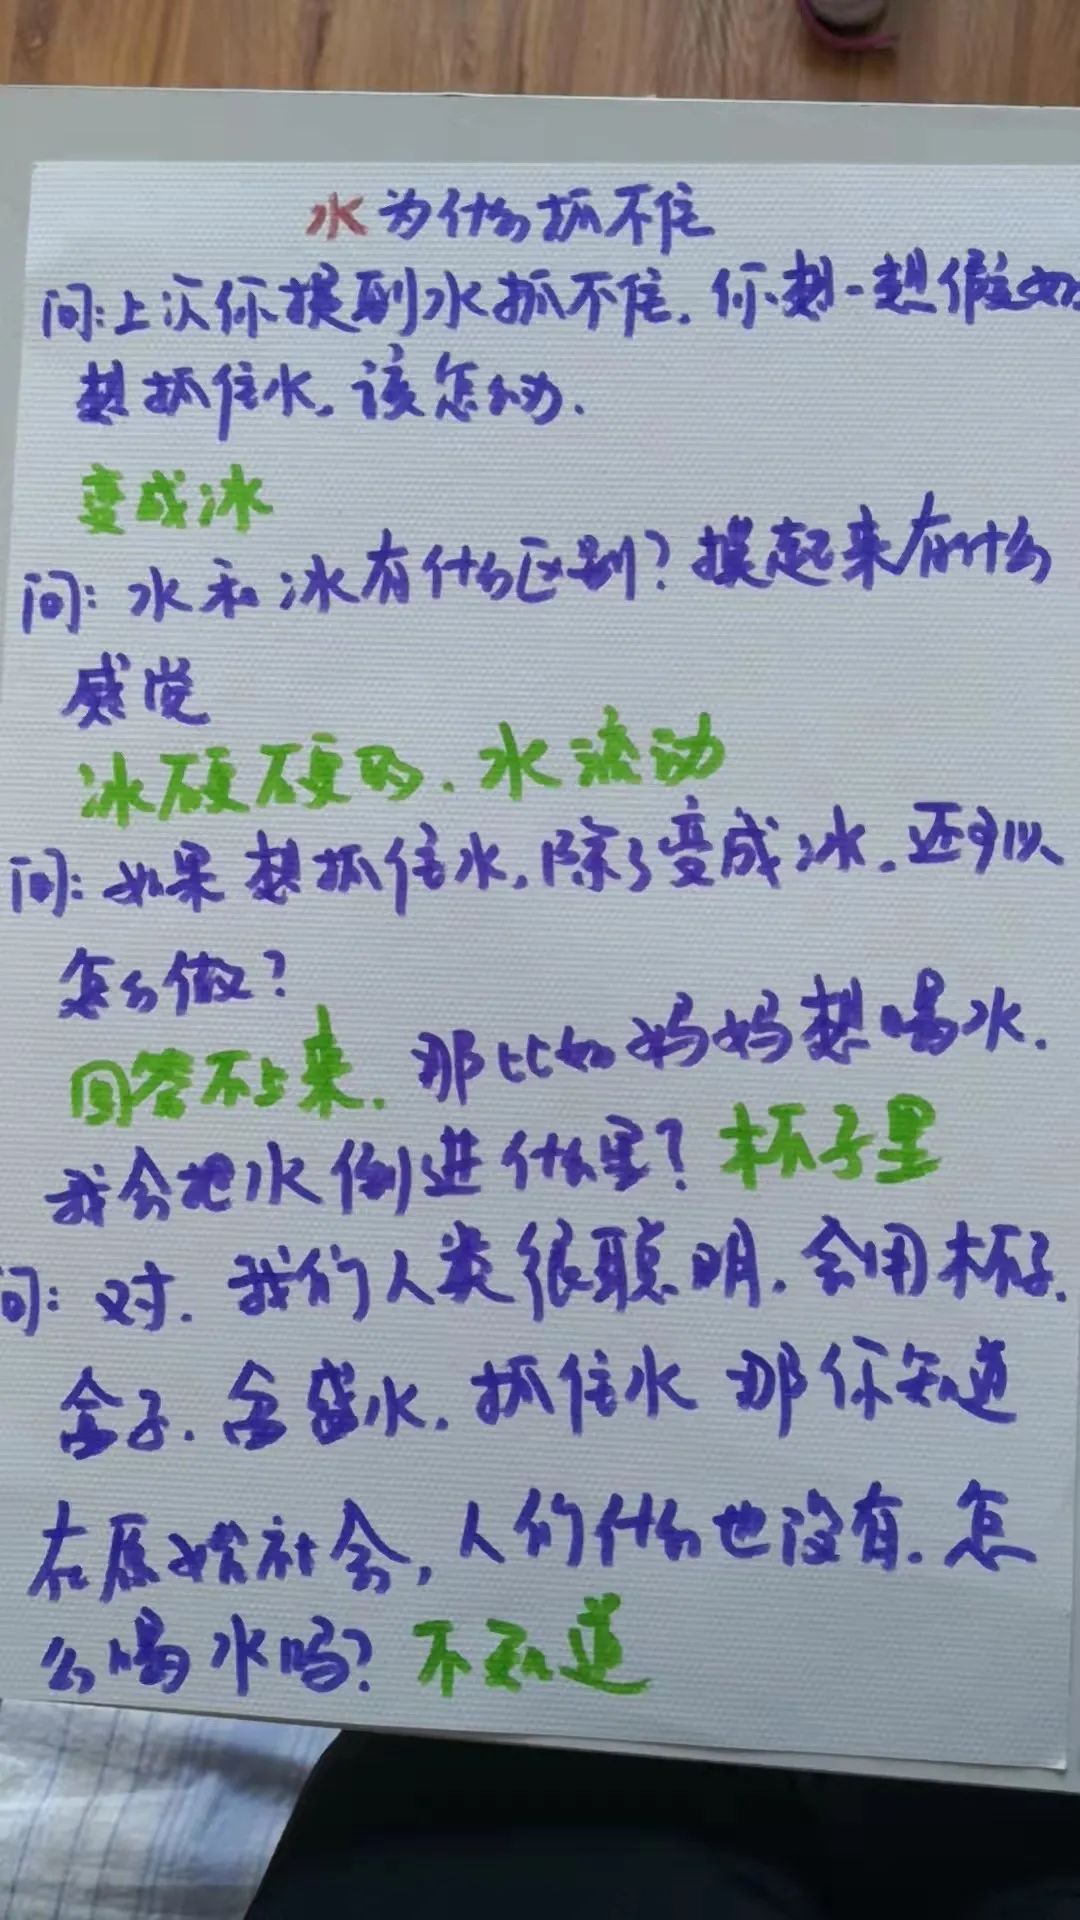 水为什么抓不住
问:上次你提到水抓不住.你想一想假如
想抓住水,该怎么办.
变成冰
问:水和冰有什么区别?摸起来有什么
感觉
冰硬硬的.水流动
问:如果想抓住水,除了变成冰.还可以
怎么做?
回答不上来.那比如妈妈想喝水.
我会把水倒进什么里?杯子里
问:对.我们人类很聪明.会用杯子.
盒子.盒盛水.抓住水 那你知道
在原始社会,人们什么也没有.怎
么喝水吗?不知道